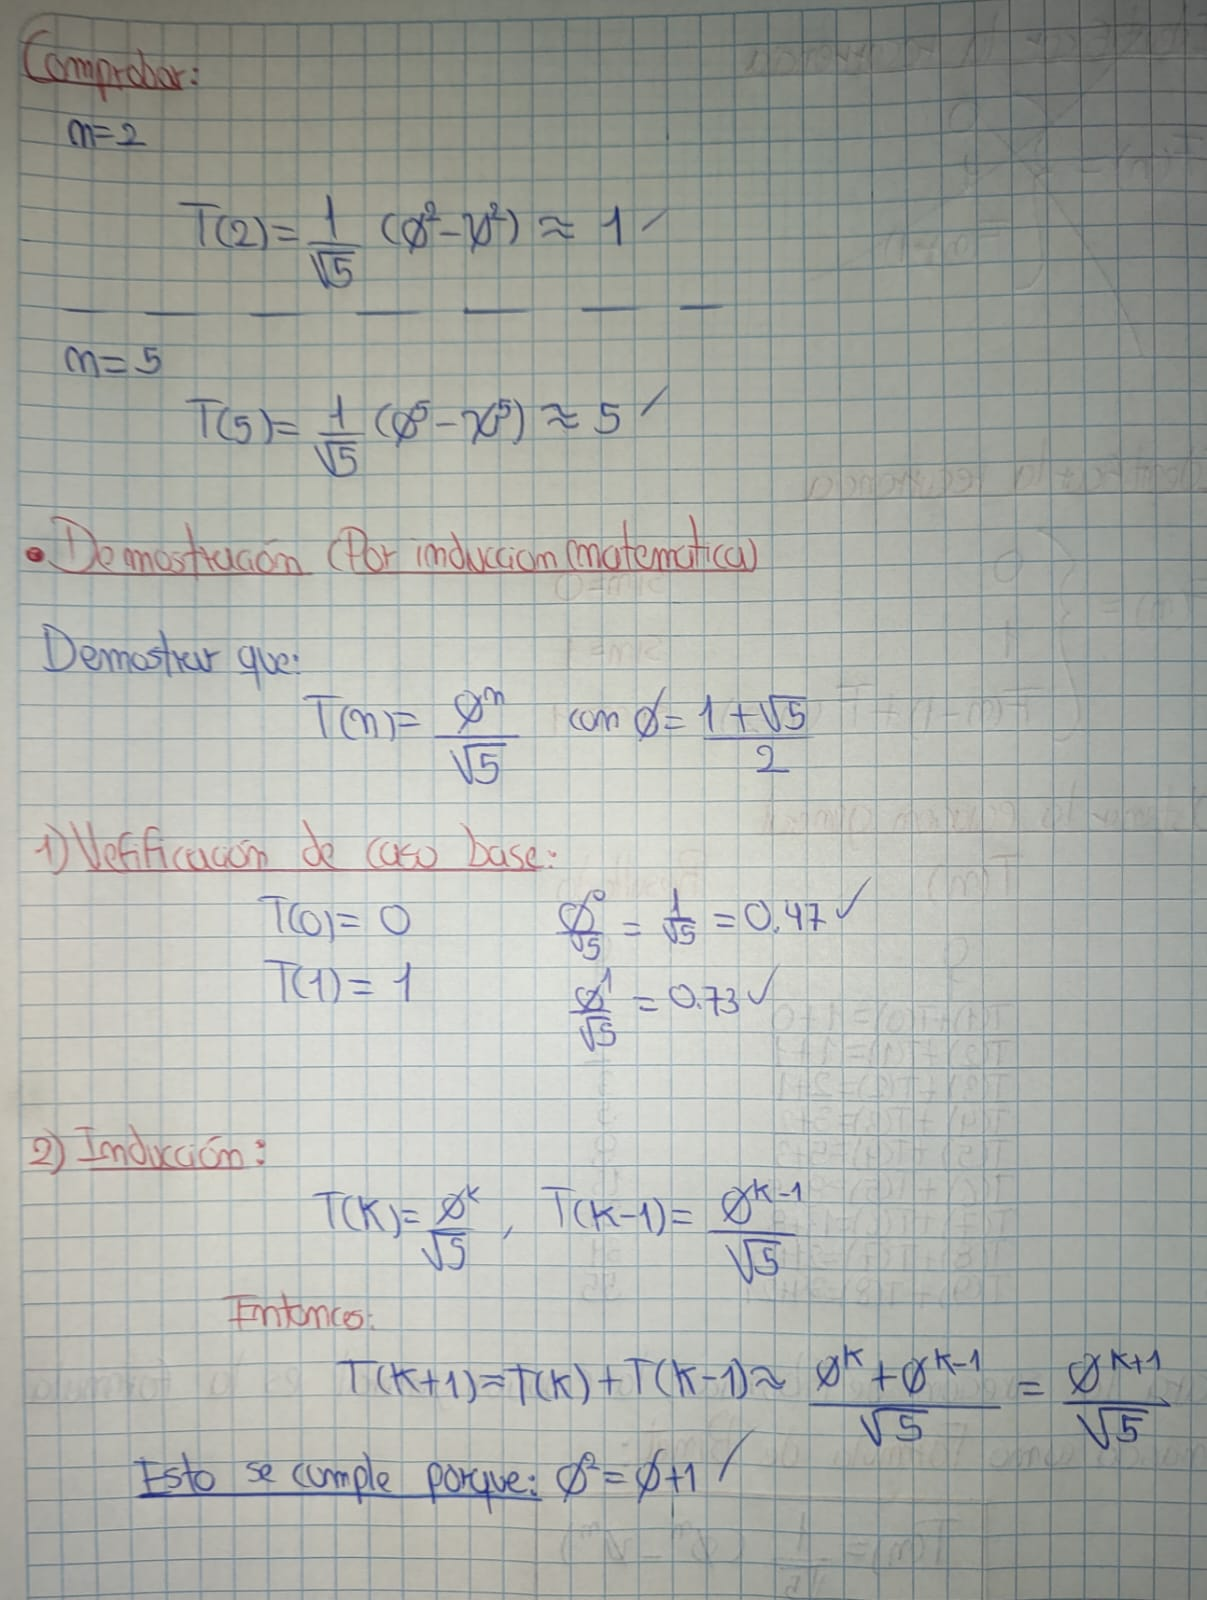 Comprobar:
n=2
T(2)= 1/√5 (φ²-ψ²) ≈ 1 ✓
n=5
T(5)= 1/√5 (φ⁵-ψ⁵) ≈ 5 ✓
• Demostración (Por induccion matematica)
Demostrar que:
T(n)= φⁿ/√5 con φ= (1+√5)/2
1) Verificación de caso base:
T(0)= 0 φ⁰/√5 = 1/√5 = 0.47 ✓
T(1)= 1 φ¹/√5 = 0.73 ✓
2) Inducción:
T(k)= φᵏ/√5 , T(k-1)= φᵏ⁻¹/√5
Entonces:
T(k+1)=T(k)+T(k-1)≈ (φᵏ+φᵏ⁻¹)/√5 = φᵏ⁺¹/√5
Esto se cumple porque: φ²=φ+1 ✓